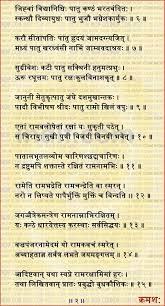 जिव्हां विद्यानिधिः पातु कण्ठं भरतवंदितः ।
स्कन्धौ दिव्यायुधः पातु भुजौ भग्नेशकार्मुकः ॥ ६ ॥
करौ सीतापतिः पातु हृदयं जामदग्न्यजित् ।
मध्यं पातु खरध्वंसी नाभिं जाम्बवदाश्रयः ॥ ७ ॥
सुग्रीवेशः कटी पातु सक्थिनी हनुमत्प्रभुः ।
ऊरू रघूत्तमः पातु रक्षःकुलविनाशकृत् ॥ ८ ॥
जानुनी सेतुकृत्पातु जंघे दशमुखान्तकः ।
पादौ बिभीषण श्रीदः पातु रामो खिलं वपुः ॥ ९ ॥
एतां रामबलोपेतां रक्षां यः सुकृती पठेत् ।
स चिरायुः सुखी पुत्री विजयी विनयी भवेत् ॥ १० ॥
पातालभूतलव्योम चारिणश्छद्मचारिणः ।
न द्रष्टुमपि शक्तास्ते रक्षितं रामनामभिः ॥ ११ ॥
रामेति रामभद्रेति रामचन्द्रेति वा स्मरन् ।
नरो न लिप्यते पापैर्भुक्तिं मुक्तिं च विन्दति ॥ १२ ॥
जगज्जैत्रैकमन्त्रेण रामनाम्नाभिरक्षितम् ।
यः कण्ठे धारयेत्तस्य करस्थाः सर्वसिद्धयः ॥ १३ ॥
वज्रपंजरनामेदं यो रामकवचं स्मरेत् ।
अव्याहताज्ञः सर्वत्र लभते जयमङ्गलम् ॥ १४ ॥
आदिष्टवान् यथा स्वप्ने रामरक्षामिमां हरः ।
तथा लिखितवान् प्रातः प्रबुद्धो बुधकौशिकः ॥ १५ ॥
॥ २ ॥
क्रमशः